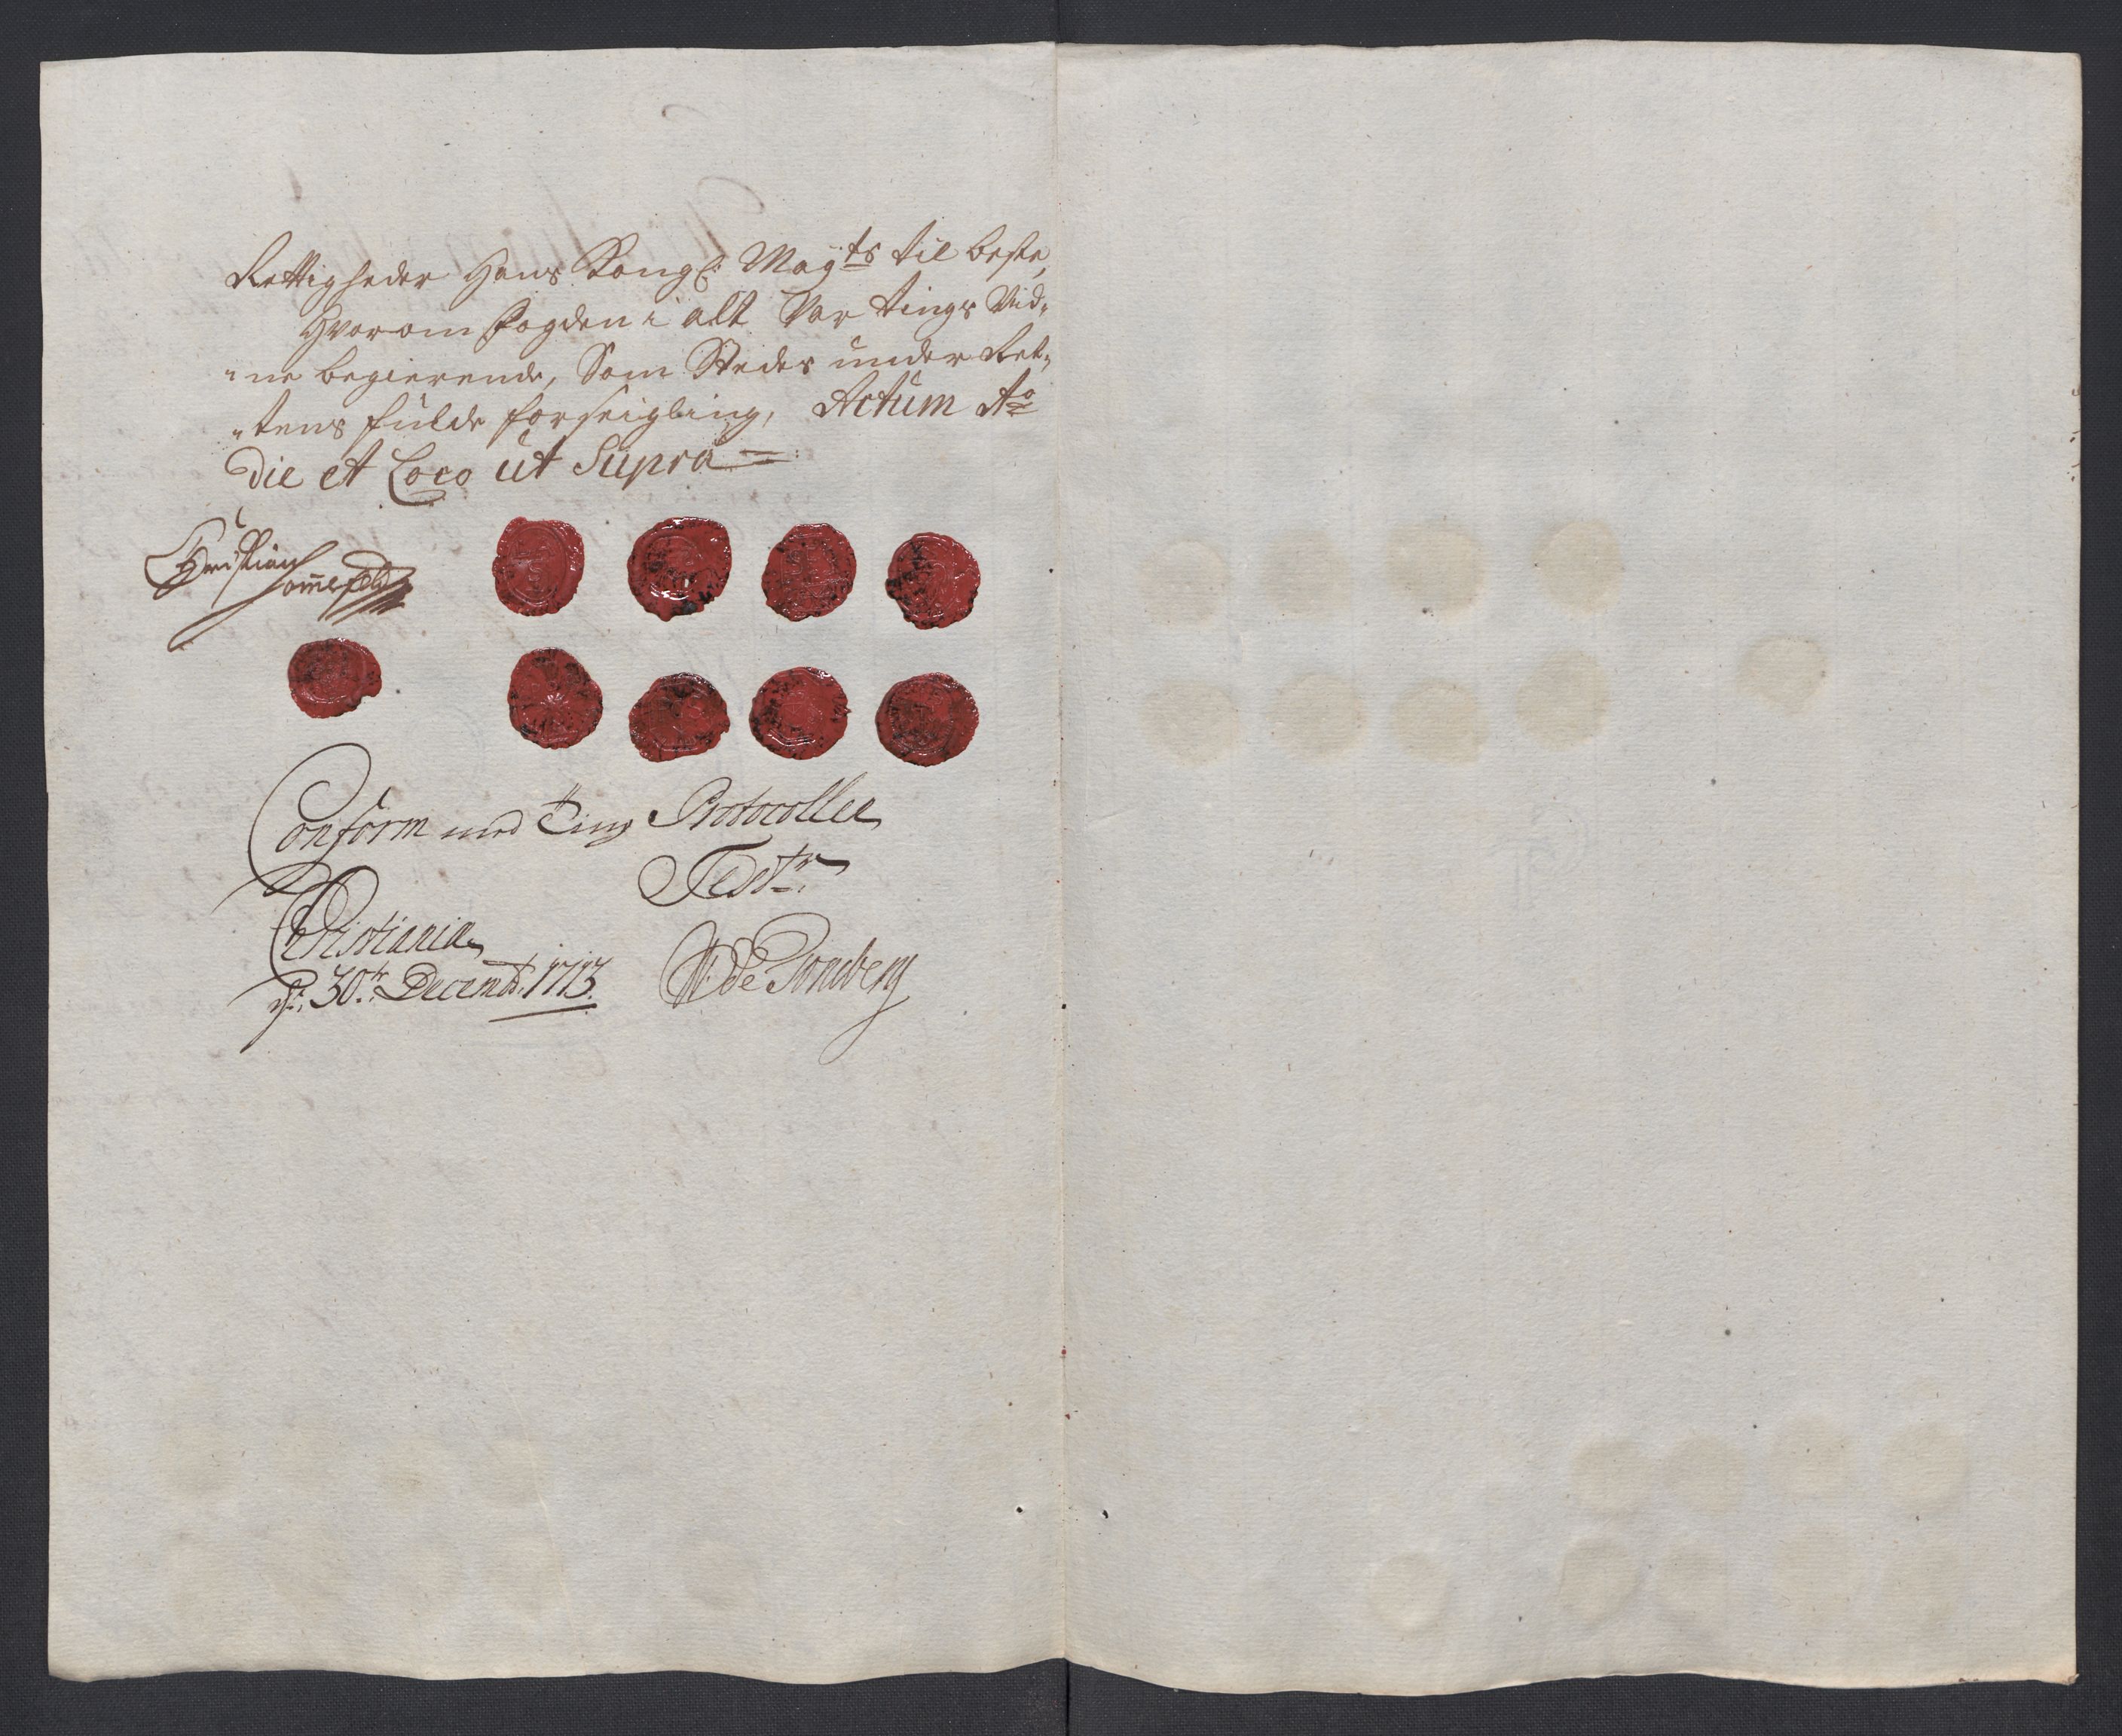 Rettigheder Hans Kongl: Mayts til beste,
Hvorom Fogden i alt Var tings Vid„
„ne begierende, Som Stedes under Ret„
„tens fulde forseigling, Actum Ao
Die et Loco ut Supra
Christian
Conform med Ting Protocollen
Test:
Christiania
d: 30te Decemb: 1713.
W: de